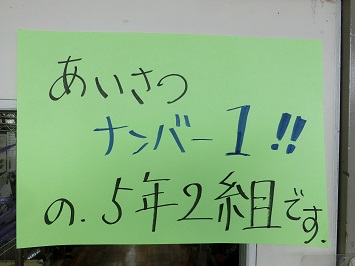 あいさつ
ナンバー1!!
の.5年2組です.